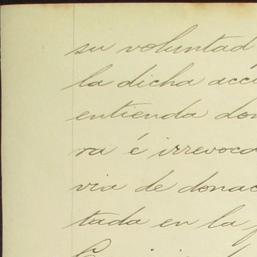 su voluntad
la dicha acci
entienda don
ra é irrevoca
via de donac
tada en la